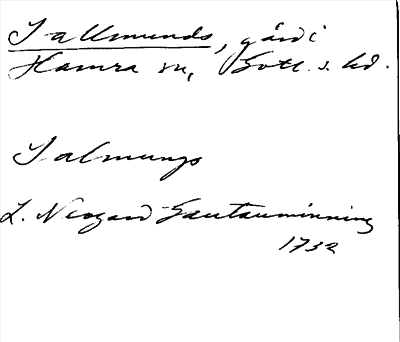 Sallmunds, gård i
Hamra sn, Gotl. s. hd.
Salmungs
L. Neogard Gautauminning
1732